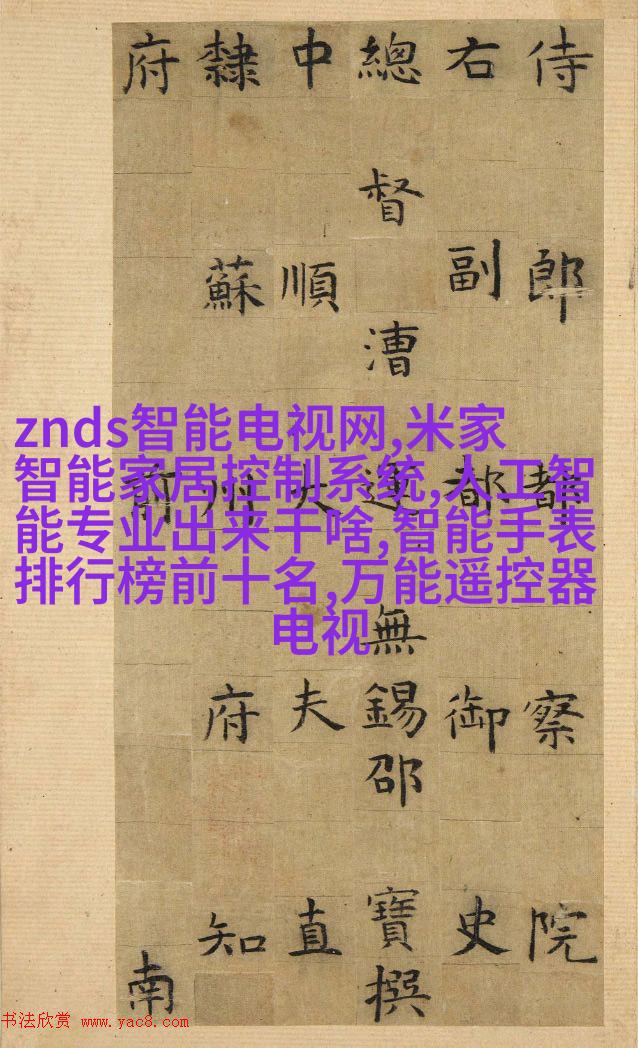 侍郎都察院
右副都御史
總督漕運無錫邵寶撰
中順大夫直
隸蘇州府知
府前南
znds智能电视网,米家
智能家居控制系统,人工智
能专业出来干啥,智能手表
排行榜前十名,万能遥控器
电视
书法欣赏 www.yac8.com